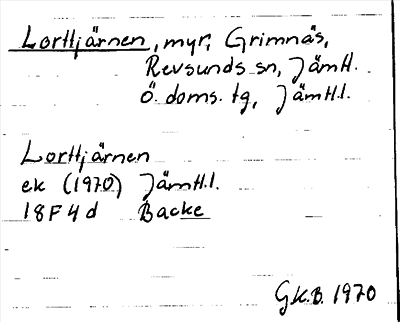 Lorttjärnen, myr, Grimnäs,
Revsunds sn, Jämtl.
Ö. doms. tg, Jämtl.l.
Lorttjärnen
ek (1970) Jämtl.l.
18F4d Backe
G.K.B. 1970